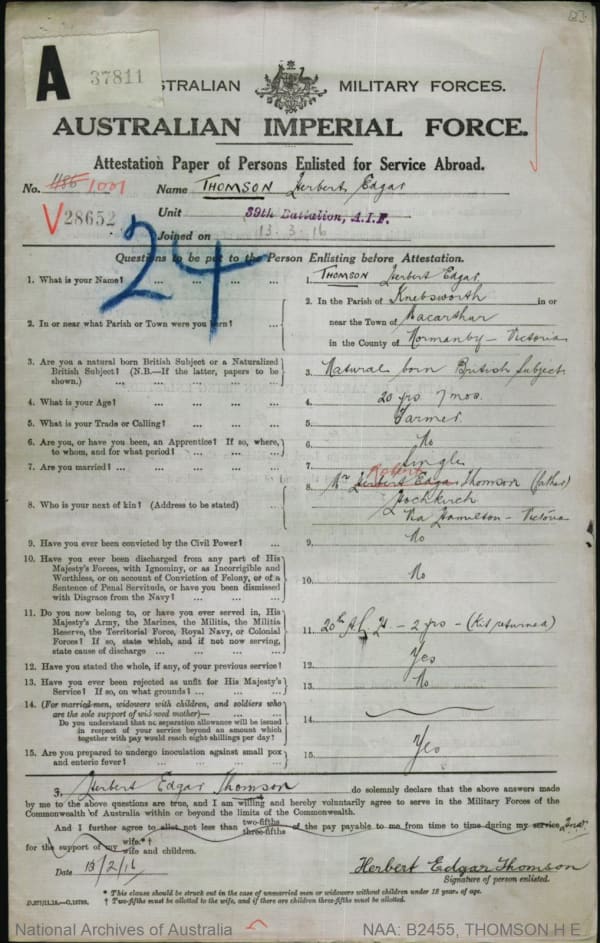 A 37811
AUSTRALIAN MILITARY FORCES.
AUSTRALIAN IMPERIAL FORCE.
Attestation Paper of Persons Enlisted for Service Abroad.
No. 486 1001 Name THOMSON Herbert Edgar
V28652 Unit 39th Battalion, A.I.F.
Joined on 13.3.16
24
Questions to be put to the Person Enlisting before Attestation.
1. What is your Name? ... ... ... ... 1. THOMSON Herbert Edgar
2. In or near what Parish or Town were you born? ... 2. In the Parish of Knebsworth in or
near the Town of Macarthur
in the County of Normanby - Victoria
3. Are you a natural born British Subject or a Naturalized British Subject? (N.B.—If the latter, papers to be shown.) ... 3. Natural born British Subject
4. What is your Age? ... ... ... ... 4. 20 yrs 7 mos.
5. What is your Trade or Calling? ... ... ... 5. Farmer
6. Are you, or have you been, an Apprentice? If so, where, to whom, and for what period? ... ... ... 6. No
7. Are you married? ... ... ... ... ... 7. Single
8. Who is your next of kin? (Address to be stated) ... 8. Mr Herbert Robert Edgar Thomson (father)
Hochkirch
Via Hamilton - Victoria
9. Have you ever been convicted by the Civil Power? ... 9. No
10. Have you ever been discharged from any part of His Majesty's Forces, with Ignominy, or as Incorrigible and Worthless, or on account of Conviction of Felony, or of a Sentence of Penal Servitude, or have you been dismissed with Disgrace from the Navy? ... ... ... 10. No
11. Do you now belong to, or have you ever served in, His Majesty's Army, the Marines, the Militia, the Militia Reserve, the Territorial Force, Royal Navy, or Colonial Forces? If so, state which, and if not now serving, state cause of discharge ... ... ... 11. 20th A L H - 2 yrs - (Kit returned)
12. Have you stated the whole, if any, of your previous service? 12. Yes
13. Have you ever been rejected as unfit for His Majesty's Service? If so, on what grounds? ... ... ... 13. No
14. (For married men, widowers with children, and soldiers who are the sole support of widowed mother)—
Do you understand that no separation allowance will be issued in respect of your service beyond an amount which together with pay would reach eight shillings per day? ... 14.
15. Are you prepared to undergo inoculation against small pox and enteric fever? ... ... ... ... 15. Yes
I, Herbert Edgar Thomson do solemnly declare that the above answers made
by me to the above questions are true, and I am willing and hereby voluntarily agree to serve in the Military Forces of the
Commonwealth of Australia within or beyond the limits of the Commonwealth.
And I further agree to allot not less than two-fifths three-fifths of the pay payable to me from time to time during my service
for the support of my wife.*†
wife and children.
Date 13/2/16 Herbert Edgar Thomson
Signature of person enlisted.
* This clause should be struck out in the case of unmarried men or widowers without children under 18 year of age.
† Two-fifths must be allotted to the wife, and if there are children three-fifths must be allotted.
National Archives of Australia NAA: B2455, THOMSON H E